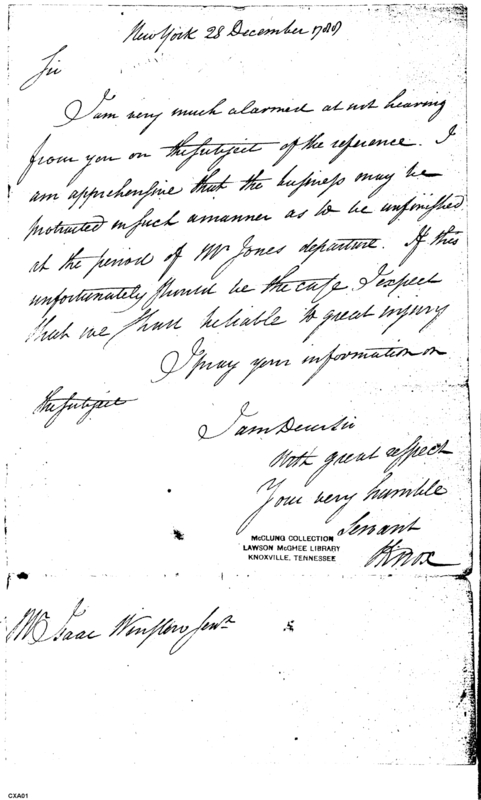 New York 28 December 1788
Sir
I am very much alarmed at not hearing
from you on the subject of the reference. I
am apprehensive that the business may be
protracted in such a manner as to be unfinished
at the period of Mr Jones departure. If this
unfortunately should be the case I expect
that we shall be liable to great injury
I pray your information on
the subject
I am Dear Sir
With great respect
Your very humble
Servant
HKnox
McCLUNG COLLECTION
LAWSON McGHEE LIBRARY
KNOXVILLE, TENNESSEE
Mr Isaac Winslow Junr
CXA01